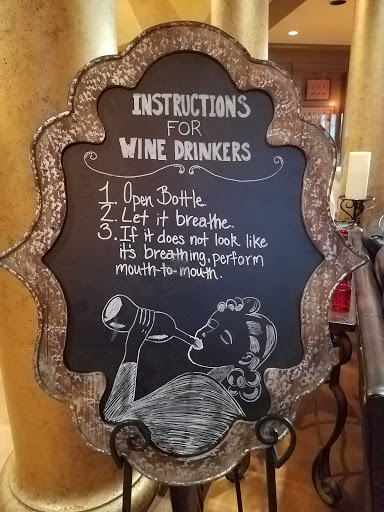 INSTRUCTIONS
FOR
WINE DRINKERS
1. Open Bottle.
2. Let it breathe.
3. If it does not look like
it's breathing, perform
mouth-to-mouth.